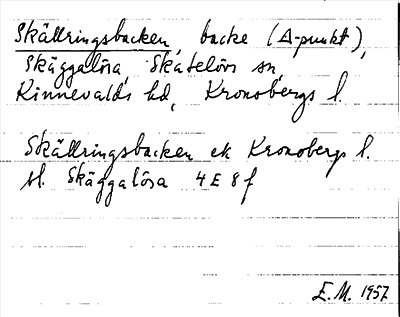 Skällringsbacken, backe (Δ-punkt),
Skäggalösa, Skatelövs sn,
Kinnevalds hd, Kronobergs l.
Skällringsbacken ek Kronobergs l.
bl. Skäggalösa 4 E 8 f
E. M. 1957